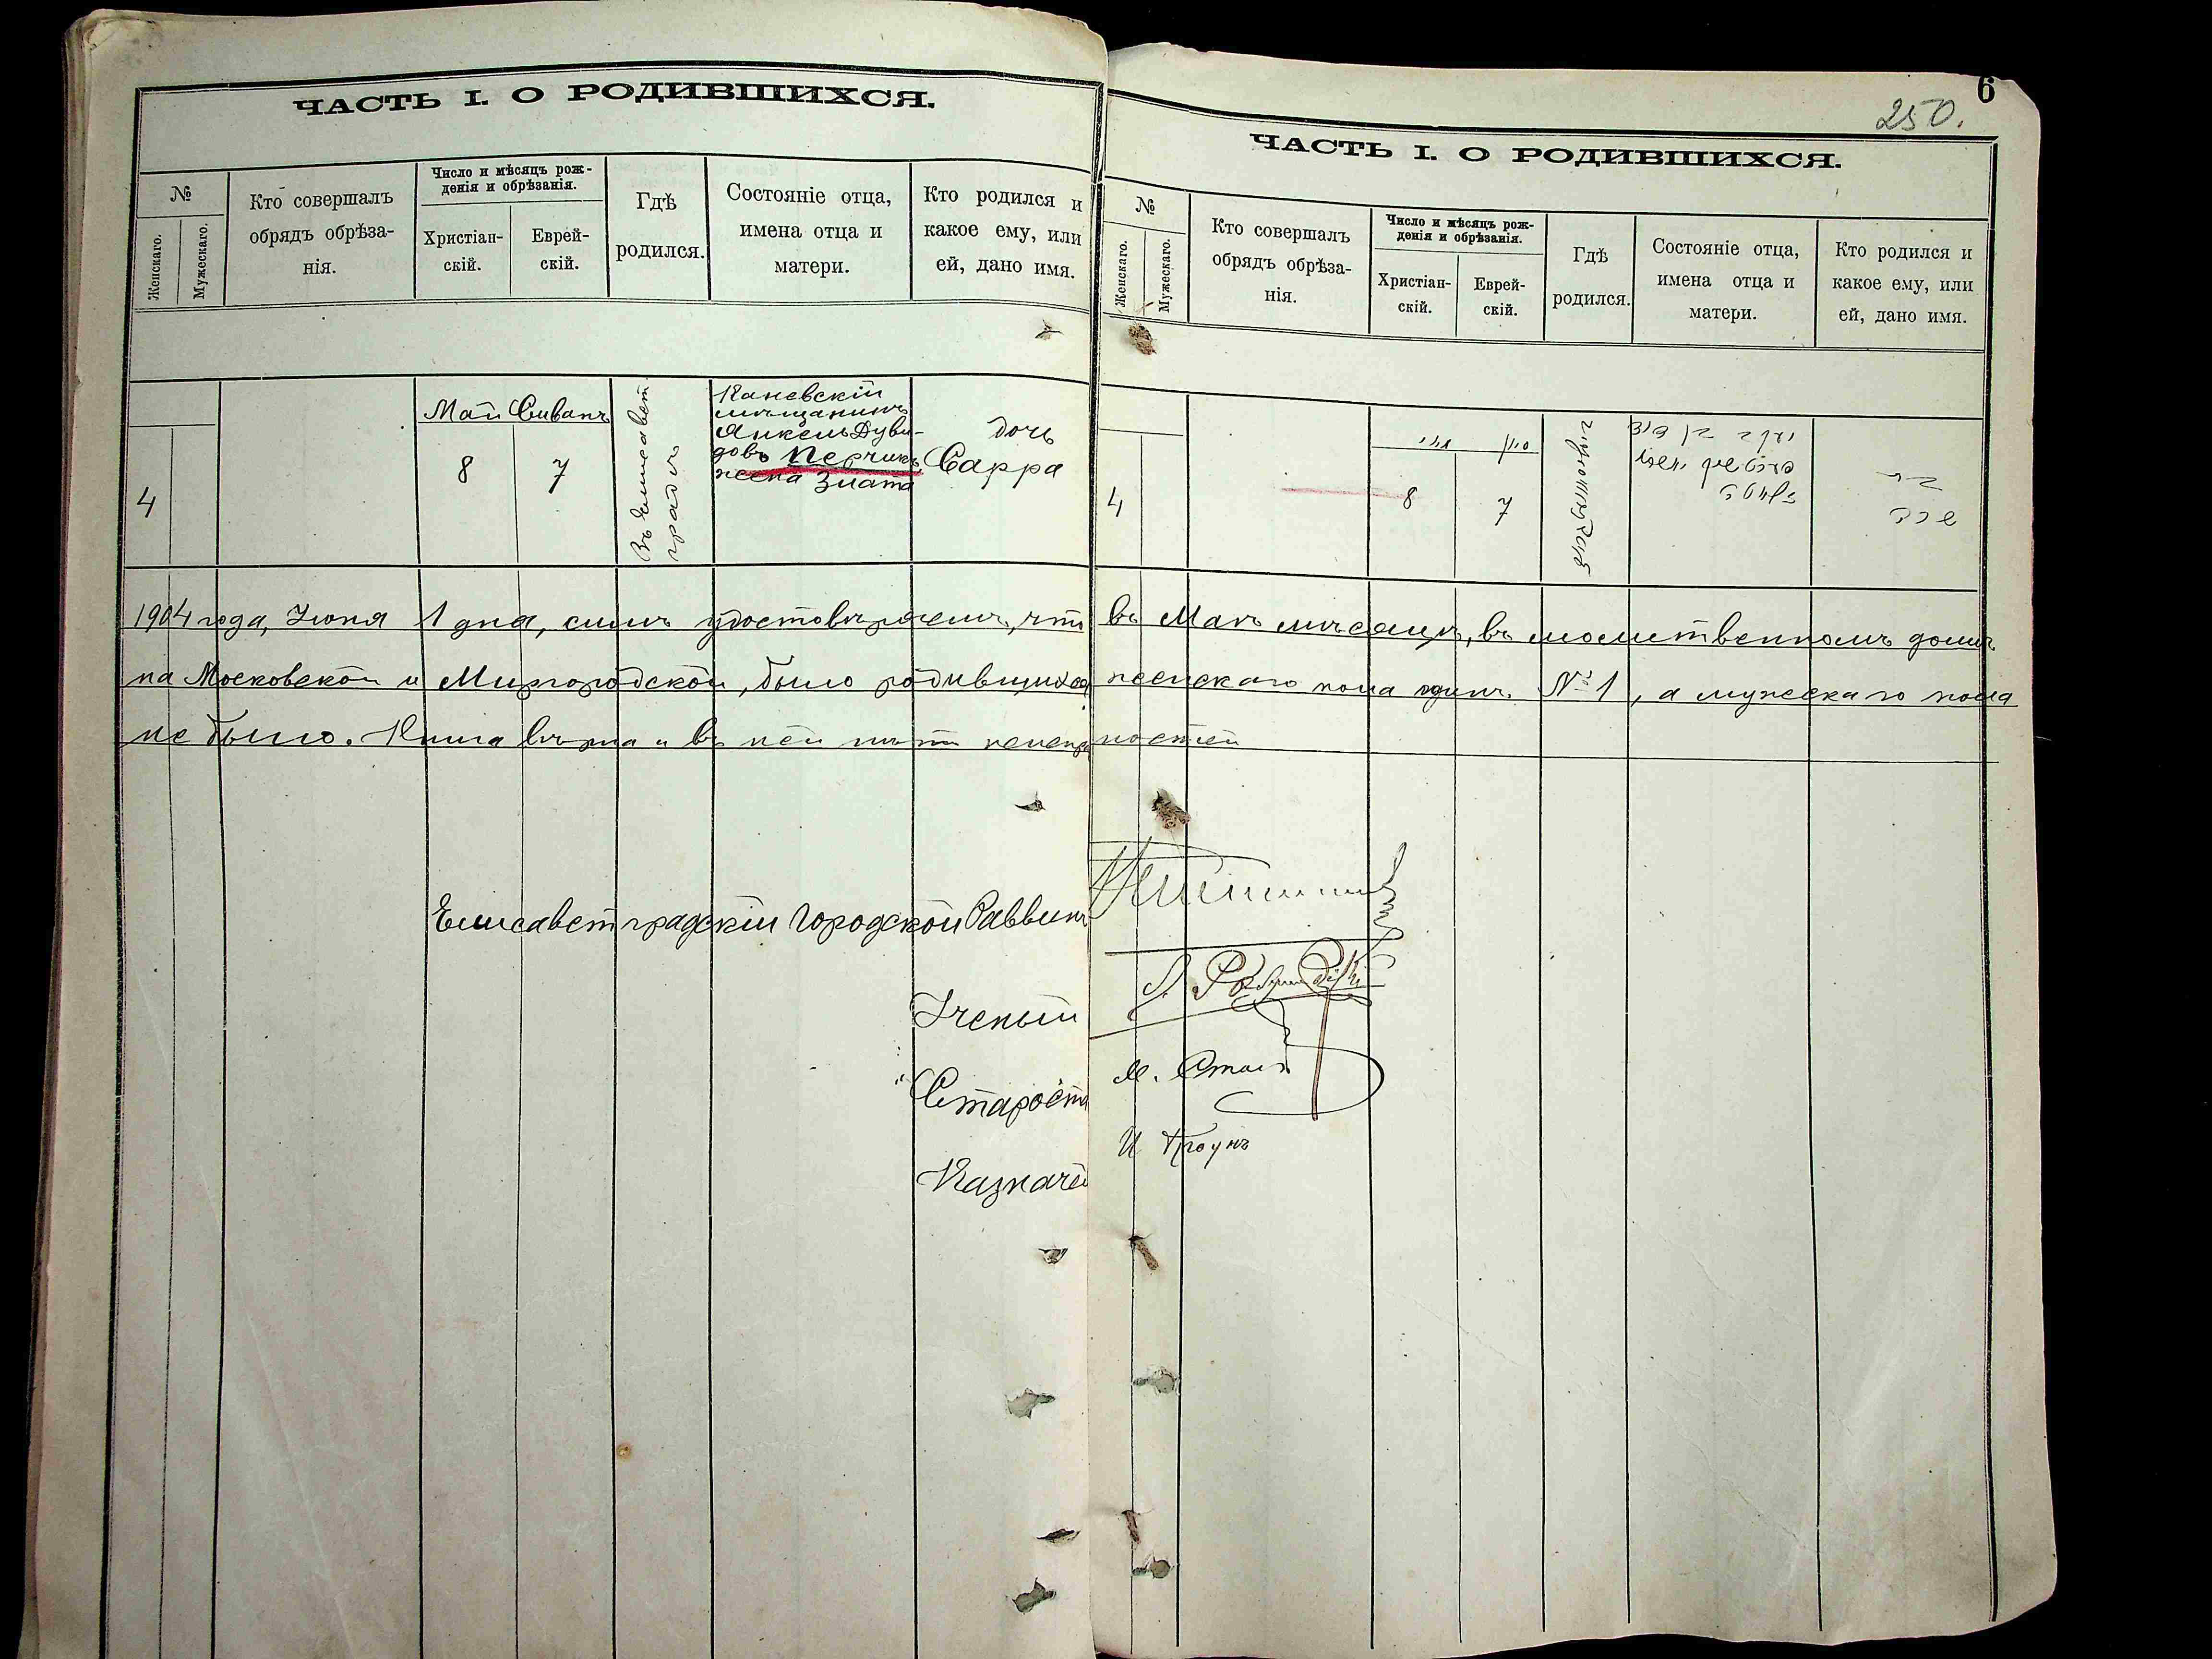 ЧАСТЬ I. О РОДИВШИХСЯ.
№
Женскаго.
Мужескаго.
Кто совершалъ
обрядъ обрѣза-
нія.
Число и мѣсяцъ рож-
денія и обрѣзанія.
Христіан-
скій.
Еврей-
скій.
Гдѣ
родился.
Состояніе отца,
имена отца и
матери.
Кто родился и
какое ему, или
ей, дано имя.
4
Май Сиванъ
8
7
Въ Елисавет
градѣ
Каневскій
мѣщанинъ
Янкель Дуви-
довъ Перчикъ
жена Злата
дочь
Сарра
6
250.
ЧАСТЬ I. О РОДИВШИХСЯ.
№
Женскаго.
Мужескаго.
Кто совершалъ
обрядъ обрѣза-
нія.
Число и мѣсяцъ рож-
денія и обрѣзанія.
Христіан-
скій.
Еврей-
скій.
Гдѣ
родился.
Состояніе отца,
имена отца и
матери.
Кто родился и
какое ему, или
ей, дано имя.
4
8
7
שרה
1904 года, Іюня 1 дня, симъ удостовѣряемъ, что въ Маѣ мѣсяцѣ, въ молитвенномъ домѣ
на Московской и Миргородской, было родившихся женскаго пола одинъ № 1, а мужескаго пола
не было. Книга вѣрна и въ ней нѣтъ
Елисаветградскій Городской Раввинъ
Ученый
Староста
Казначей